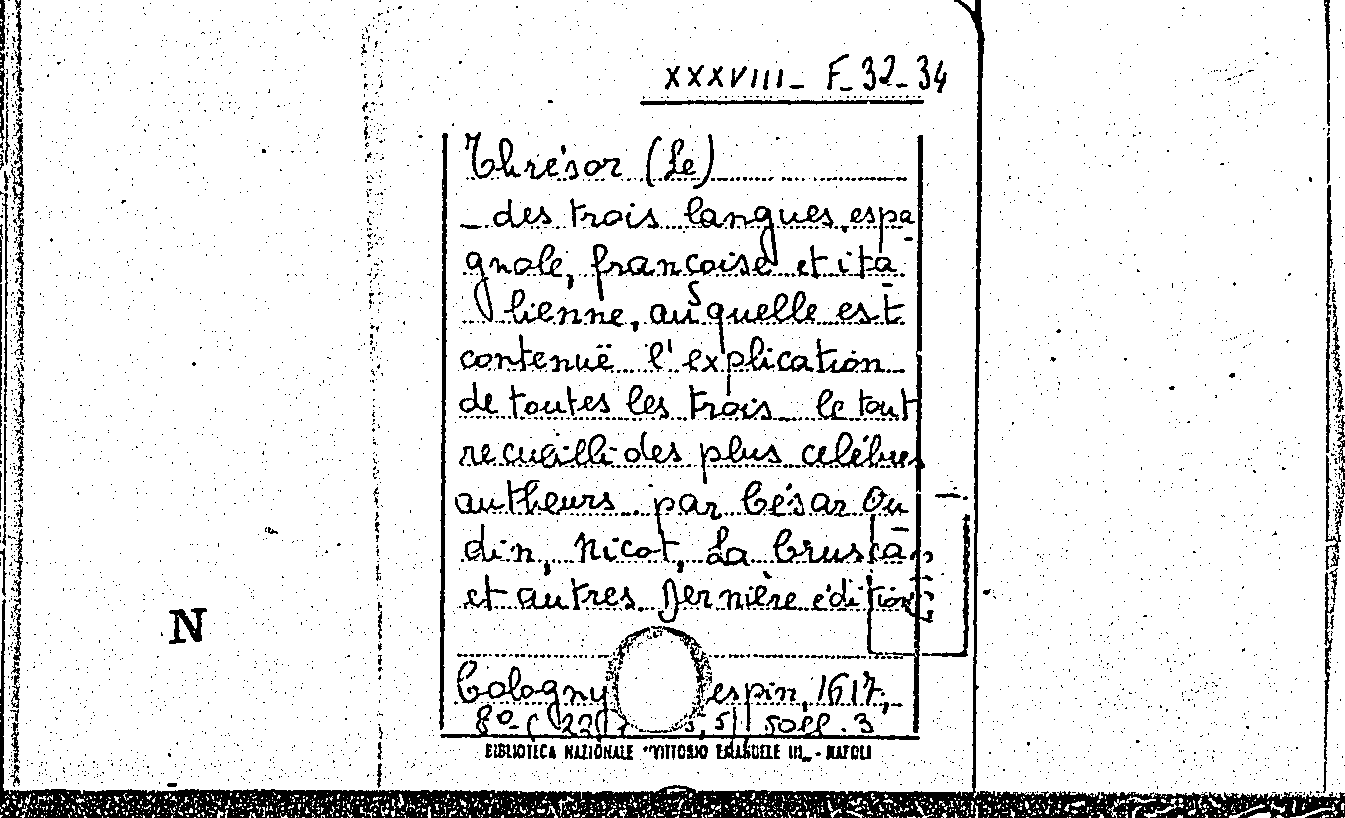 XXXVIII_ F_32_34
Thrésor (Le)
_ des trois langues espa
gnole, françoise et ita
lienne, ausquelle est
contenuë l'explication
de toutes les trois_ le tout
recueilli des plus celébres
autheurs par César Ou
din, Nicot, La Crusca
et autres Dernière édition
Cologny espin, 1617,
8º
BIBLIOTECA NAZIONALE "VITTORIO EMANUELE III" - NAPOLI
N